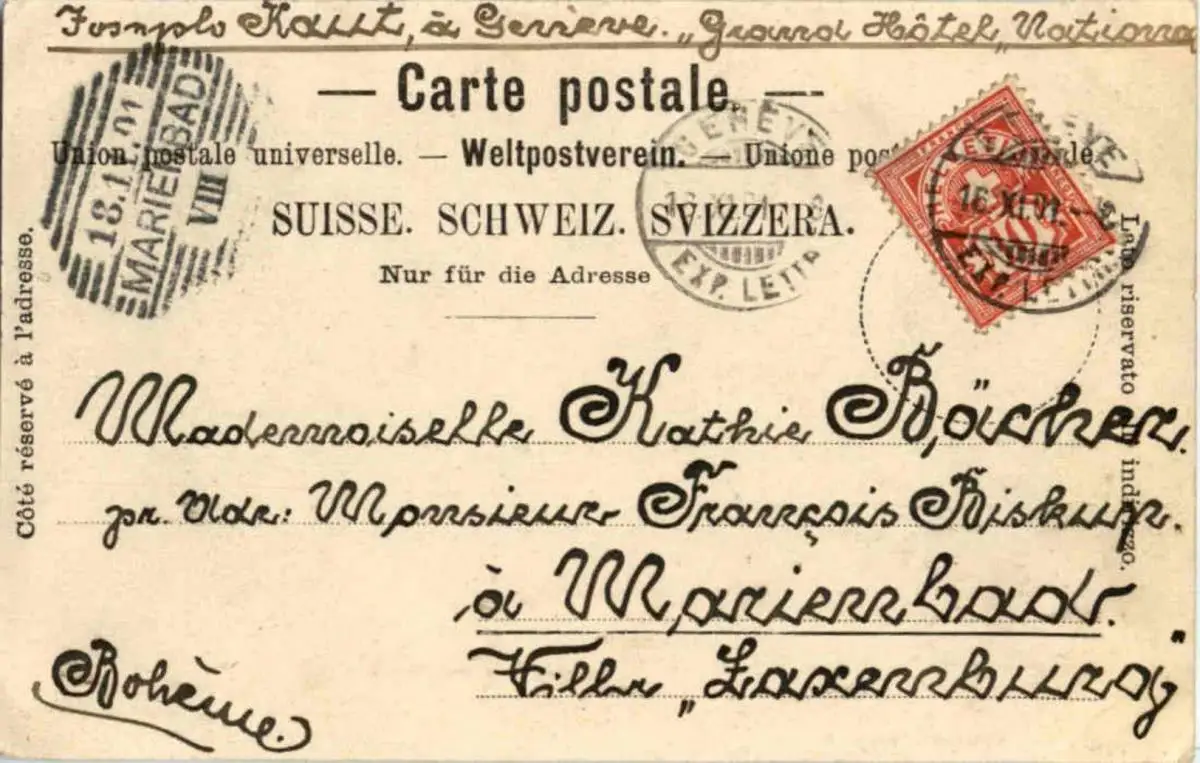 Kaut, à Genève. „Grand Hôtel „Nationa
— Carte postale. —
Union postale universelle. — Weltpostverein. — Unione postale
SUISSE. SCHWEIZ. SVIZZERA.
Nur für die Adresse
18.11.01
MARIENBAD
VIII
GENÈVE
16.XI.01
EXP. LETTR
HELVETIA
10
16.XI.01.
EXP. LETTR
Côté réservé à l'adresse.
Lato riservato all' indirizzo.
Mademoiselle Kathie Böcher.
pr. Adr: Monsieur François Biskup.
à Marienbad.
Villa „Laxenburg"
Bohème.